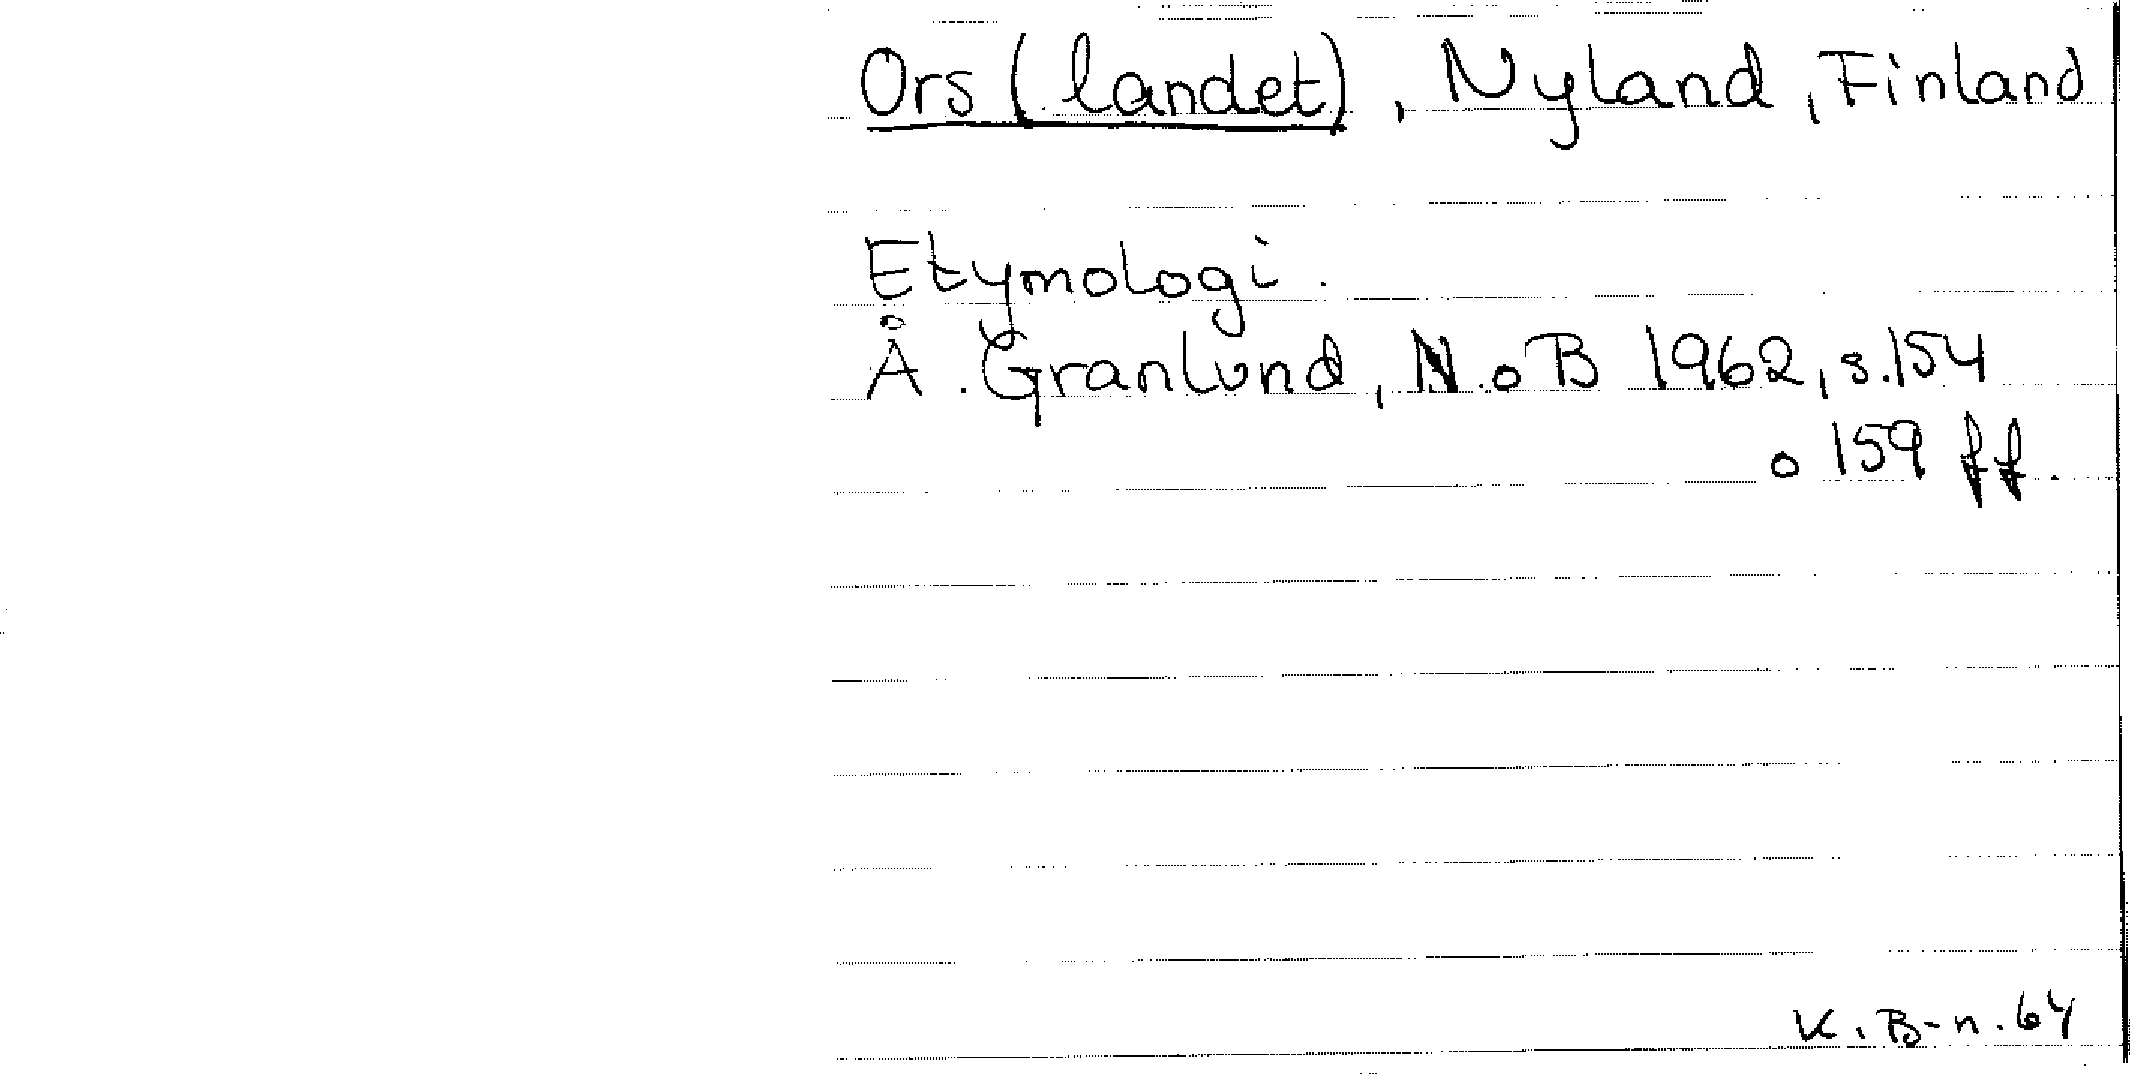 Ors (landet), Nyland, Finland
Etymologi.
Å. Granlund, N.o B 1962, s.154
o 159 ff.
K. B-n. 64